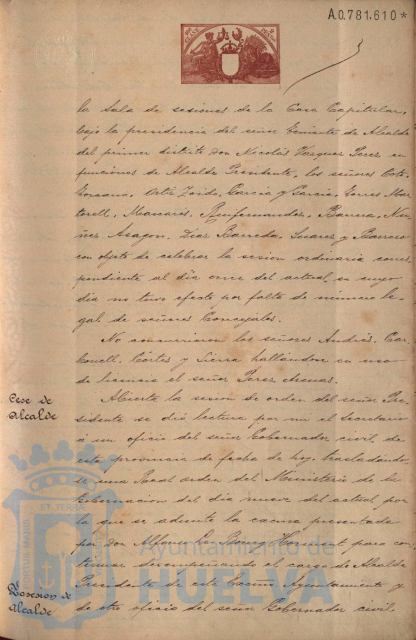 A.0.781.610*
la Sala de sesiones de la Casa Capitular,
bajo la presidencia del señor Teniente de Alcalde
del primer distrito Don Nicolás Vazquez Perez en
funciones de Alcalde Presidente, los señores Oeto
Lozano, Ortiz Zoido, García y García, Torres Mar
torell, Manares, Berfernandez, Barrera, Nu
ñez Aragon, Diaz Barreda, Suarez y Barrero
con objeto de celebrar la sesion ordinaria corres
pondiente al dia once del actual, en cuyo
dia no tuvo efecto por falta de número le
gal de señores Concejales.
No concurrieron los señores Andrés, Car
bonell, Córtes y Sierra hallándose en uso
de licencia el señor Perez Arenas.
Cese de
Alcalde
Abierta la sesion de orden del señor Pre
sidente se dió lectura por mi el Secretario
á un oficio del señor Gobernador civil de
esta provincia de fecha de hoy, trasladándo
se una Real orden del Ministerio de la
Gobernacion del dia nueve del actual por
la que se admite la escusa presentada
por Don Alfonso Le Bourg para con
tinuar desempeñando el cargo de Alcalde
Presidente de este Excmo. Ayuntamiento y
Posesion de
Alcalde
de otro oficio del señor Gobernador civil
Ayuntamiento de
HUELVA